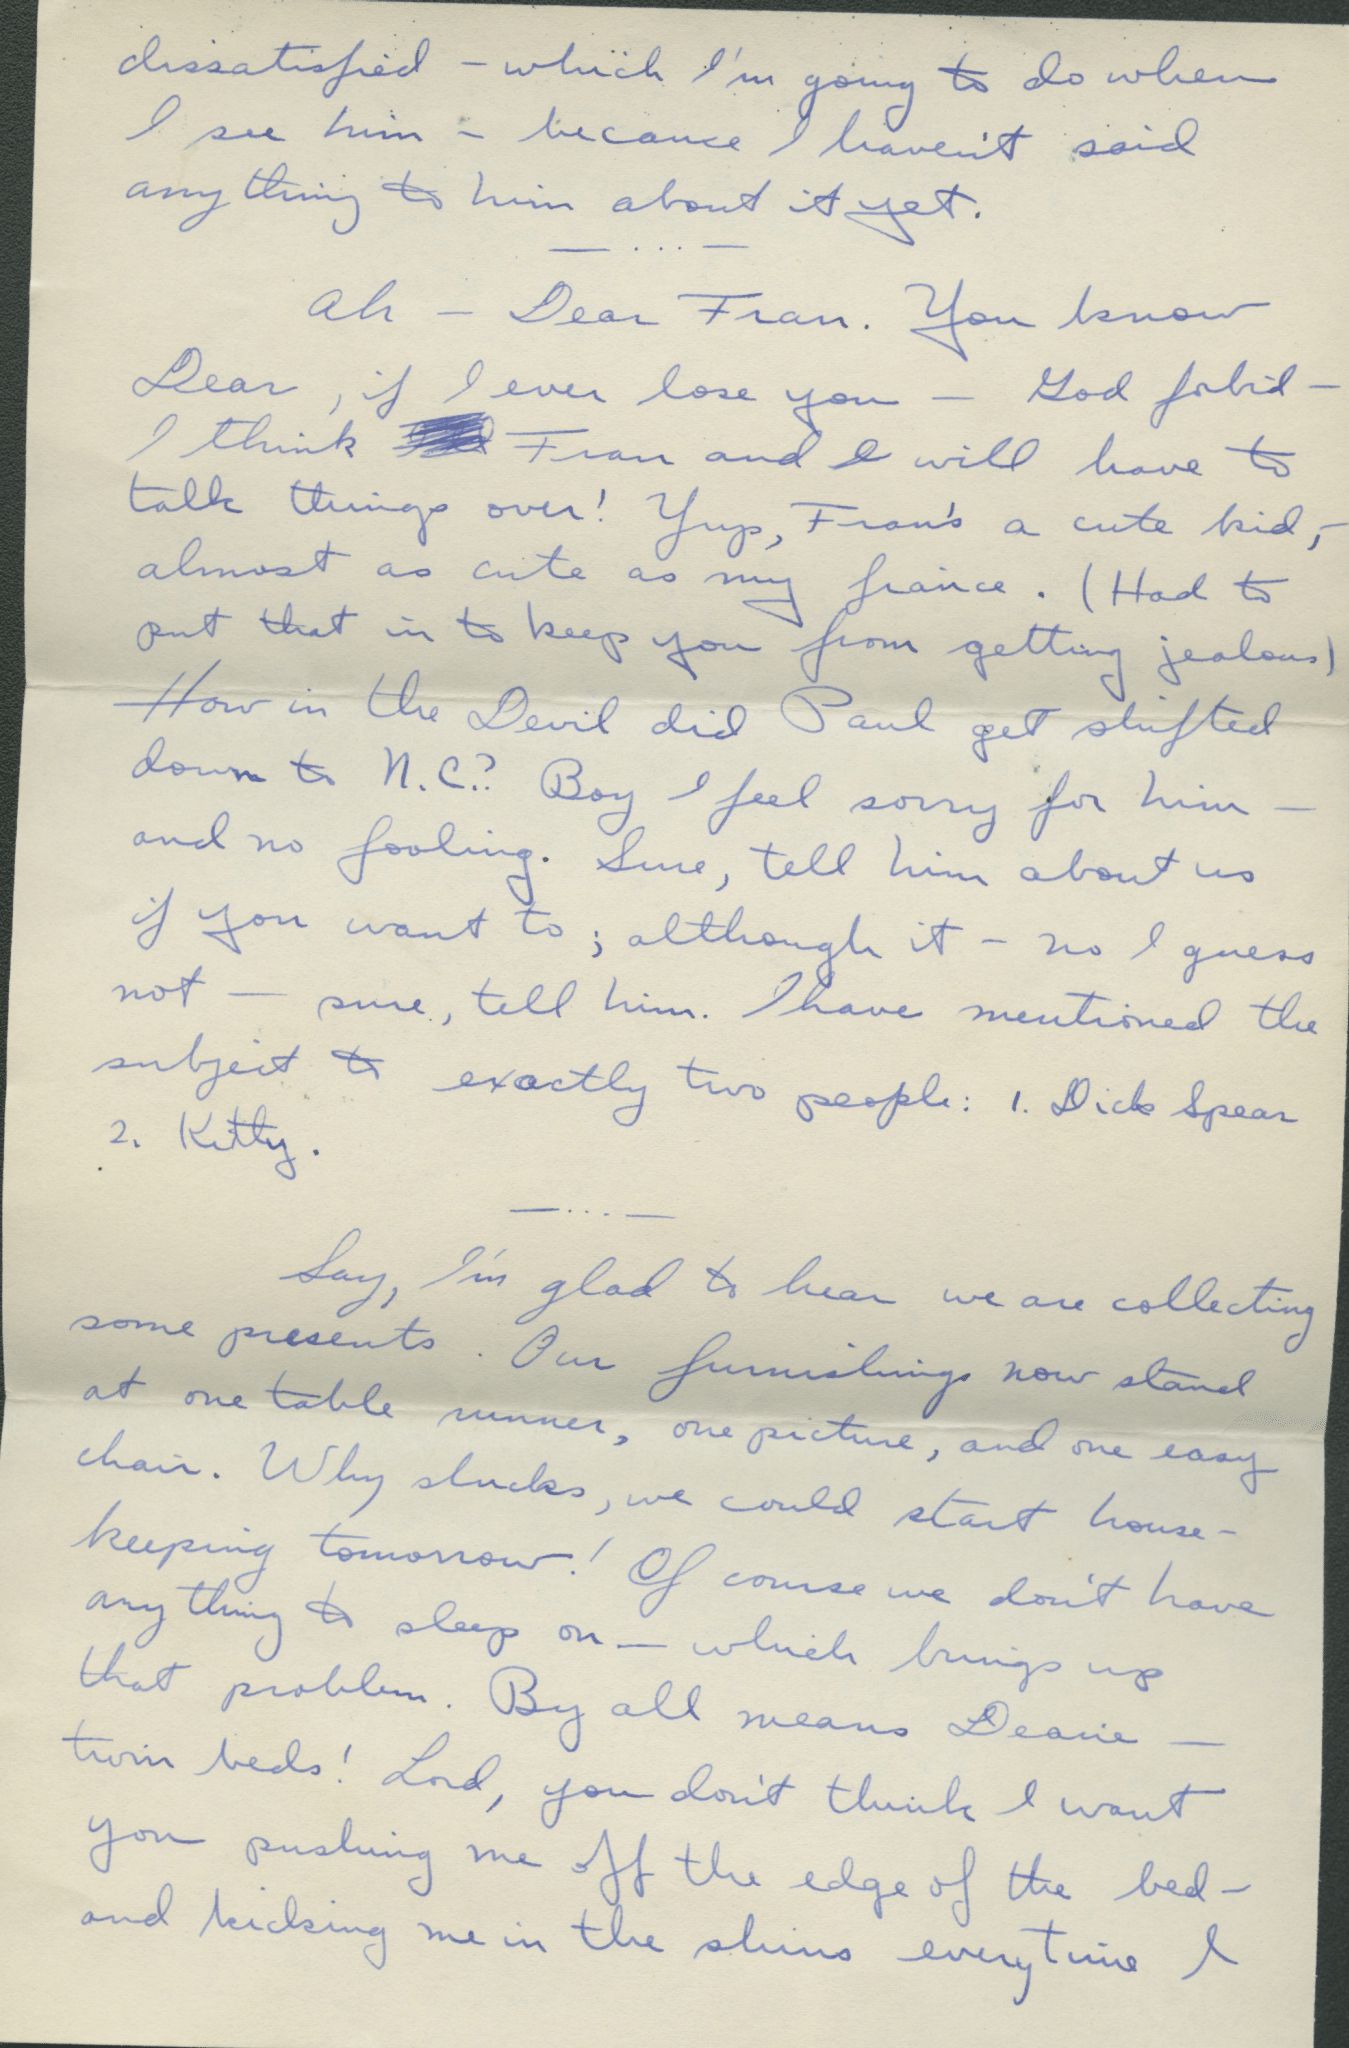 dissatisfied – which I'm going to do when
I see him – because I haven't said
anything to him about it yet.
— ... —
Ah – Dear Fran. You know
Dear, if I ever lose you – God forbid –
I think Fran and I will have to
talk things over! Yup, Fran's a cute kid, –
almost as cute as my fraince. (Had to
put that in to keep you from getting jealous)
How in the Devil did Paul get shifted
down to N.C.? Boy I feel sorry for him –
and no fooling. Sure, tell him about us
if you want to; although it – no I guess
not – sure, tell him. I have mentioned the
subject to exactly two people: 1. Dick Spear
2. Kitty.
— ... —
Say, I'm glad to hear we are collecting
some presents. Our furnishings now stand
at one table runner, one picture, and one easy
chair. Why shucks, we could start house-
keeping tomorrow! Of course we don't have
anything to sleep on – which brings up
that problem. By all means Dearie –
twin beds! Lord, you don't think I want
you pushing me off the edge of the bed –
and kicking me in the shins everytime I